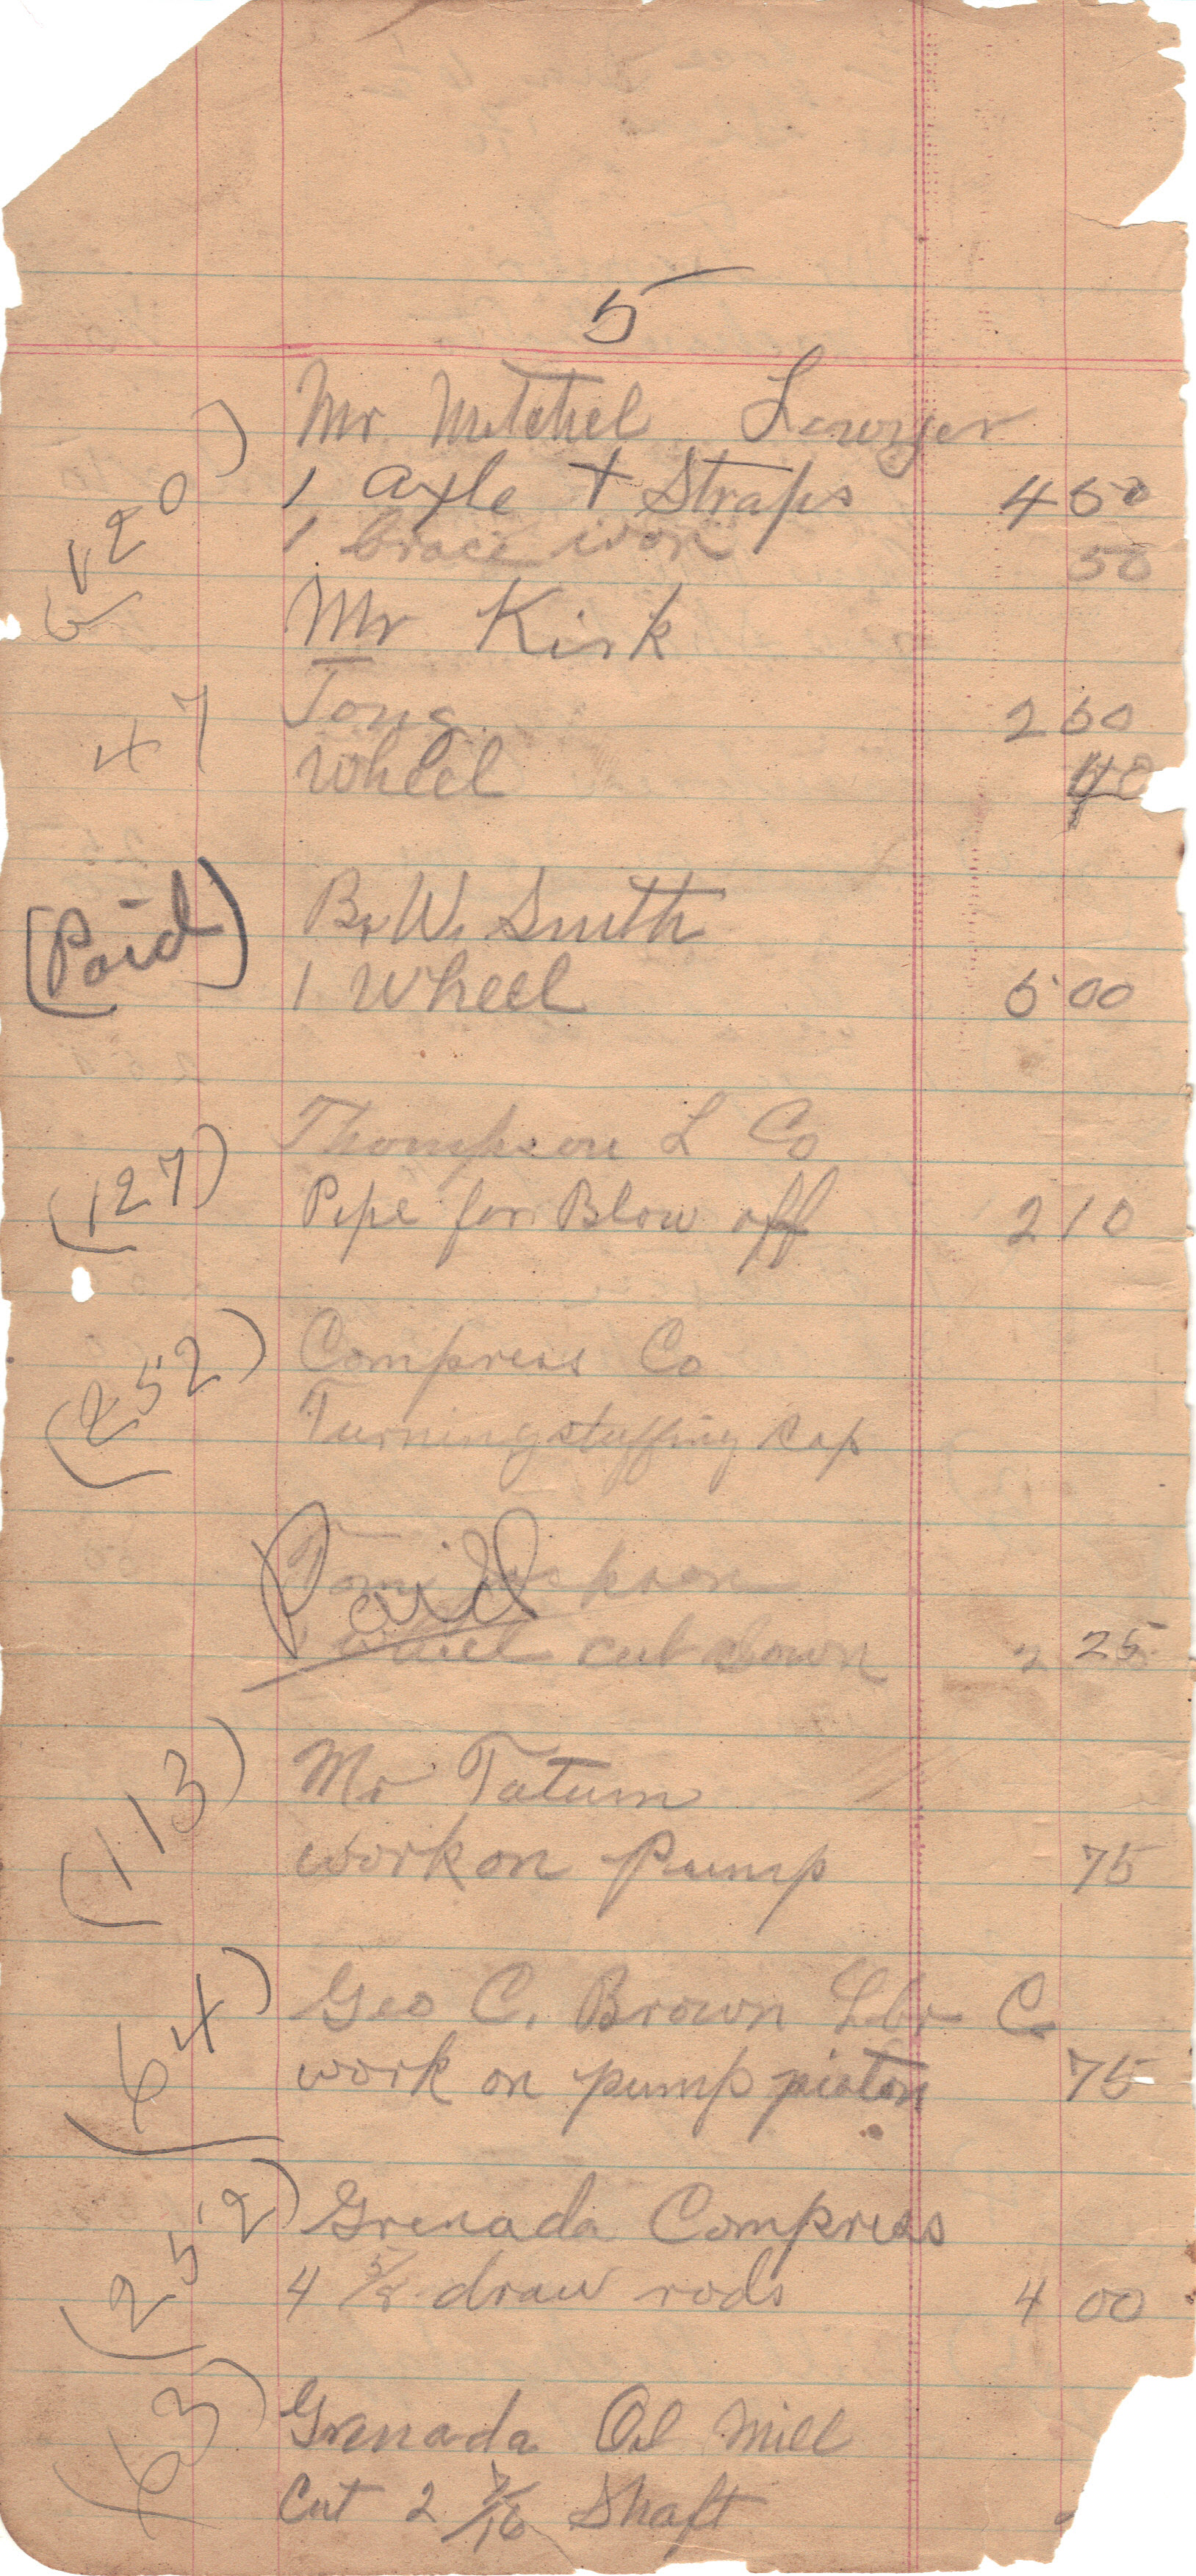 5
Mr. Mitchel Lawyer
(120)
1 axle + Straps 4 50
1 brace iron 50
Mr Kirk
47
Tong 2 50
Wheel 40
(Paid)
B. W. Smith
1 Wheel 5 00
Thompson L Co
(127)
Pipe for Blow off 2 10
(252)
Compress Co
Turning stuffing cap
Paid
Tom Jackson
1 wheel cut down 2 25
(113)
Mr Tatum
work on Pump 75
(64)
Geo C. Brown Lbr C
work on pump piston 75
(252)
Grenada Compress
4 5/8 draw rods 4 00
(63)
Grenada Oil Mill
Cut 2 7/16 Shaft